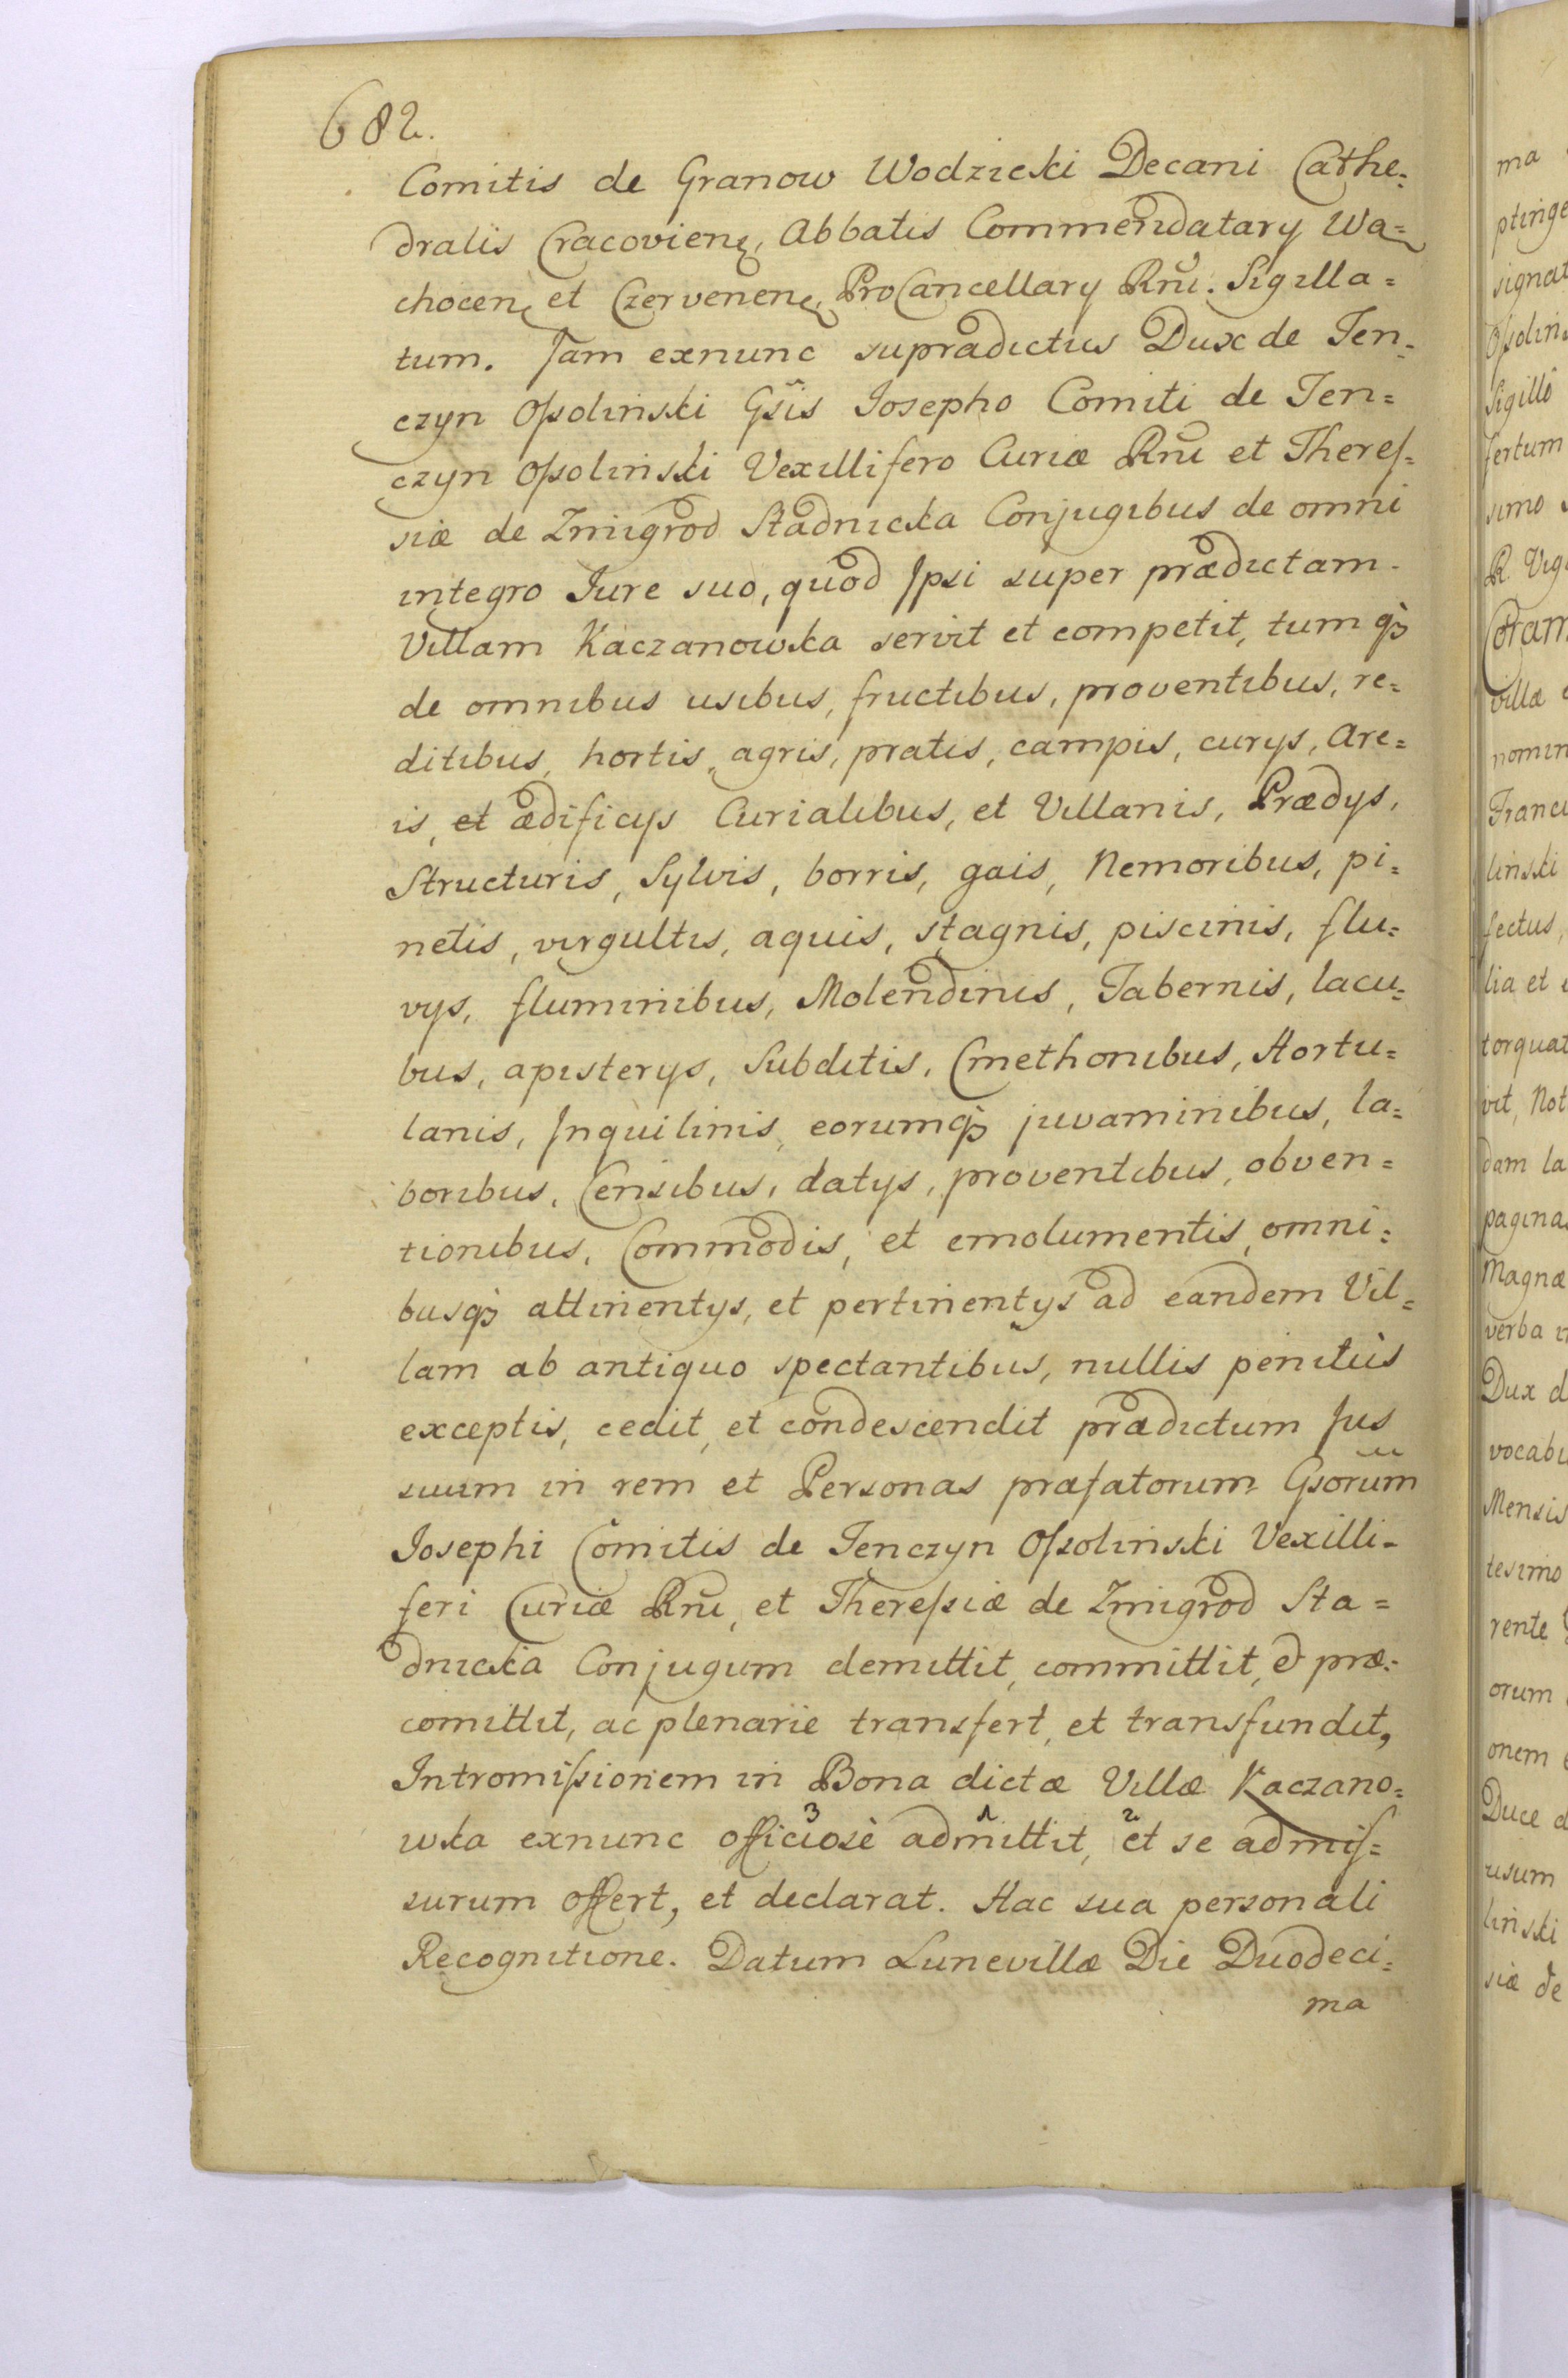 682.
Comitis de Granow Wodzicki Decani Cathe=
dralis Cracovienę, Abbatis Commendatary Wa=
chocenę et Czervenenę, ProCancellary Rnũ. Sigilla=
tum. Jam exnunc supradictus Dux de Ten=
czyn Ossoliński Gsĩs Josepho Comiti de Ten=
czyn Ossoliński Vexillifero Curiæ Rnũ et Theres=
siæ de Zmigrod Stadnicka Conjugibus de omni
integro Jure suo, quod Ipsi super prædictam
Villam Kaczanowka servit et competit, tumq̀3
de omnibus usibus, fructibus, proventibus, re=
ditibus, hortis, agris, pratis, campis, curys, are=
is, et ædificys Curialibus, et Villanis, Prædys,
Structuris, Sylvis, borris, gais, Nemoribus, pi=
netis, virgultis, aquis, stagnis, piscinis, flu=
vys, fluminibus, Molendinis, Tabernis, lacu=
bus, apisterys, Subditis, Cmethonibus, Hortu=
lanis, Inquilinis, eorumq̀3 juvaminibus, la=
boribus, Censibus, datys, proventibus, obven=
tionibus, Commodis, et emolumentis, omni=
busq̀3 attinentys, et pertinentys ad eandem Vil=
lam ab antiquo spectantibus, nullis penitùs
exceptis, cedit, et condescendit prædictum Jus
suum in rem et Personas præfatorum Gsorũm
Josephi Comitis de Tenczyn Ossoliński Vexilli=
feri Curiæ Rnũ, et Theressiæ de Zmigrod Sta=
dnicka Conjugum demittit, committit, & præ=
comittit, ac plenarie transfert, et transfundit,
Intromissionem in Bona dictæ Villæ Kaczano=
wka exnunc officiosè 3 admittit, 1 et 2 se admis=
surum offert, et declarat. Hac sua personali
Recognitione. Datum Lunevillæ Die Duodeci=
ma
ma
ptinge
signat
Ossolins
Sigillô
sertum
simo
R. Vig
Coram
villæ
nomin
Franci
liński
fectus,
lia et
torquat
vit, Not
dam la
pagina
Magnæ
verba
Dux d
vocabu
Mensis
tesimo
rente
orum
onem
Duce d
usum
liński
siæ de